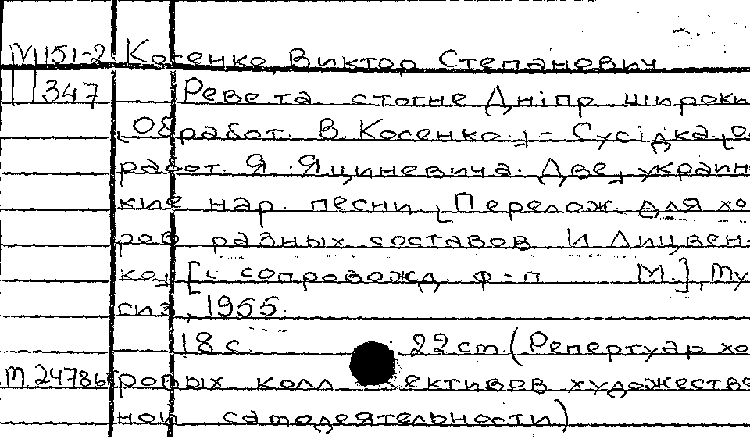 М 151-2 Косенко, Виктор Степанович
347 Реве та стогне Дніпр широки
[Обработ. В. Косенко]. - Сусідка [об
работ. Я. Яциневича. Две] украин
ские нар. песни. [Перелож. для хо
ров разных составов И. Лицвен
ко] [с сопровожд. ф-п М.], Му
сиз, 1955.
18 с. 22 cm. (Репертуар хо
М 24786 ровых коллективов художестве
ной самодеятельности)